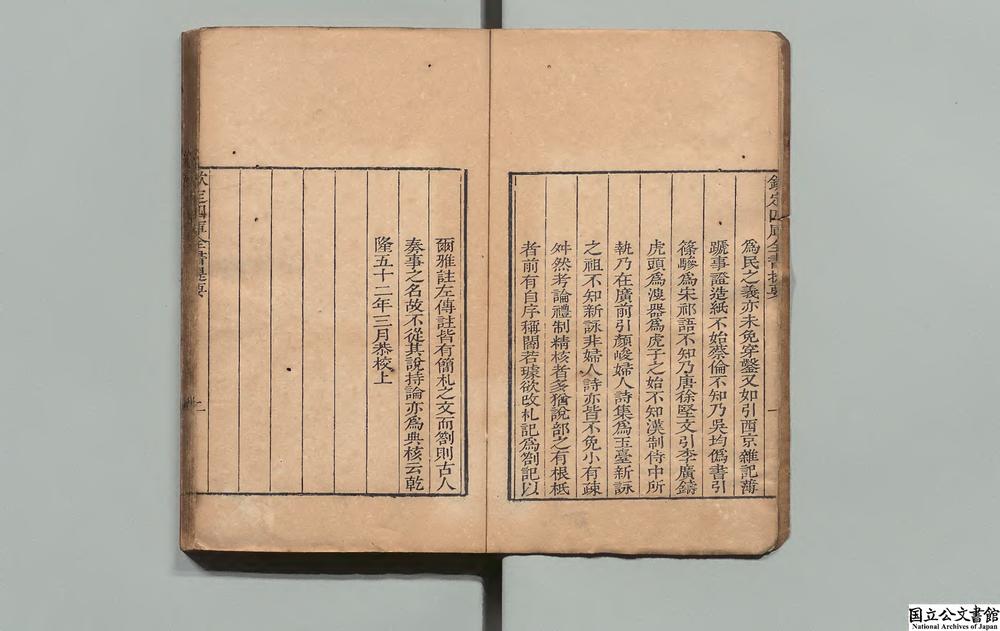 欽定四庫全書提要
為民之義亦未免穿鑿又如引西京雜記薄
蹏事證造紙不始蔡倫不知乃吳均僞書引
篠驂為宋祁語不知乃唐徐堅文引李廣鑄
虎頭為溲器為虎子之始不知漢制侍中所
執乃在廣前引顏峻婦人詩集為玉臺新詠
之祖不知新詠非婦人詩亦皆不免小有疎
舛然考論禮制精核者多猶說部之有根柢
者前有自序稱閻若璩欲改札記為劄記以
爾雅註左傳註皆有簡札之文而劄則古人
奏事之名故不從其說持論亦為典核云乾
隆五十二年三月恭校上
欽定四庫全書提要
国立公文書館
National Archives of Japan